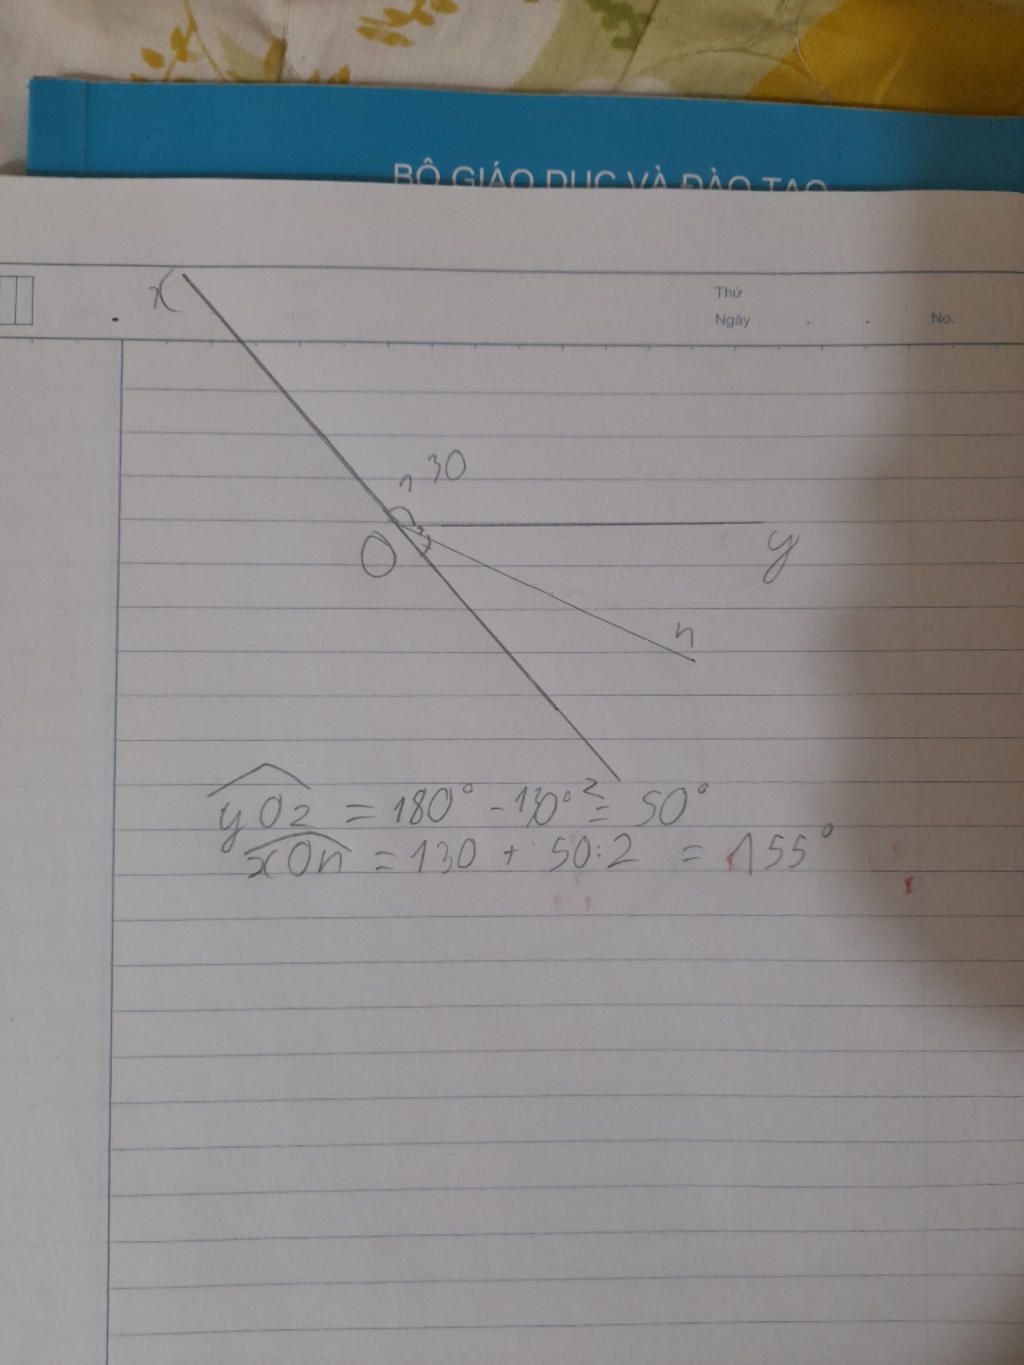 BỘ GIÁO DỤC VÀ ĐÀO TẠO
x
Thứ
Ngày . . No.
130
O
y
n
z
yOz = 180° - 130° = 50°
xOn = 130 + 50:2 = 155°